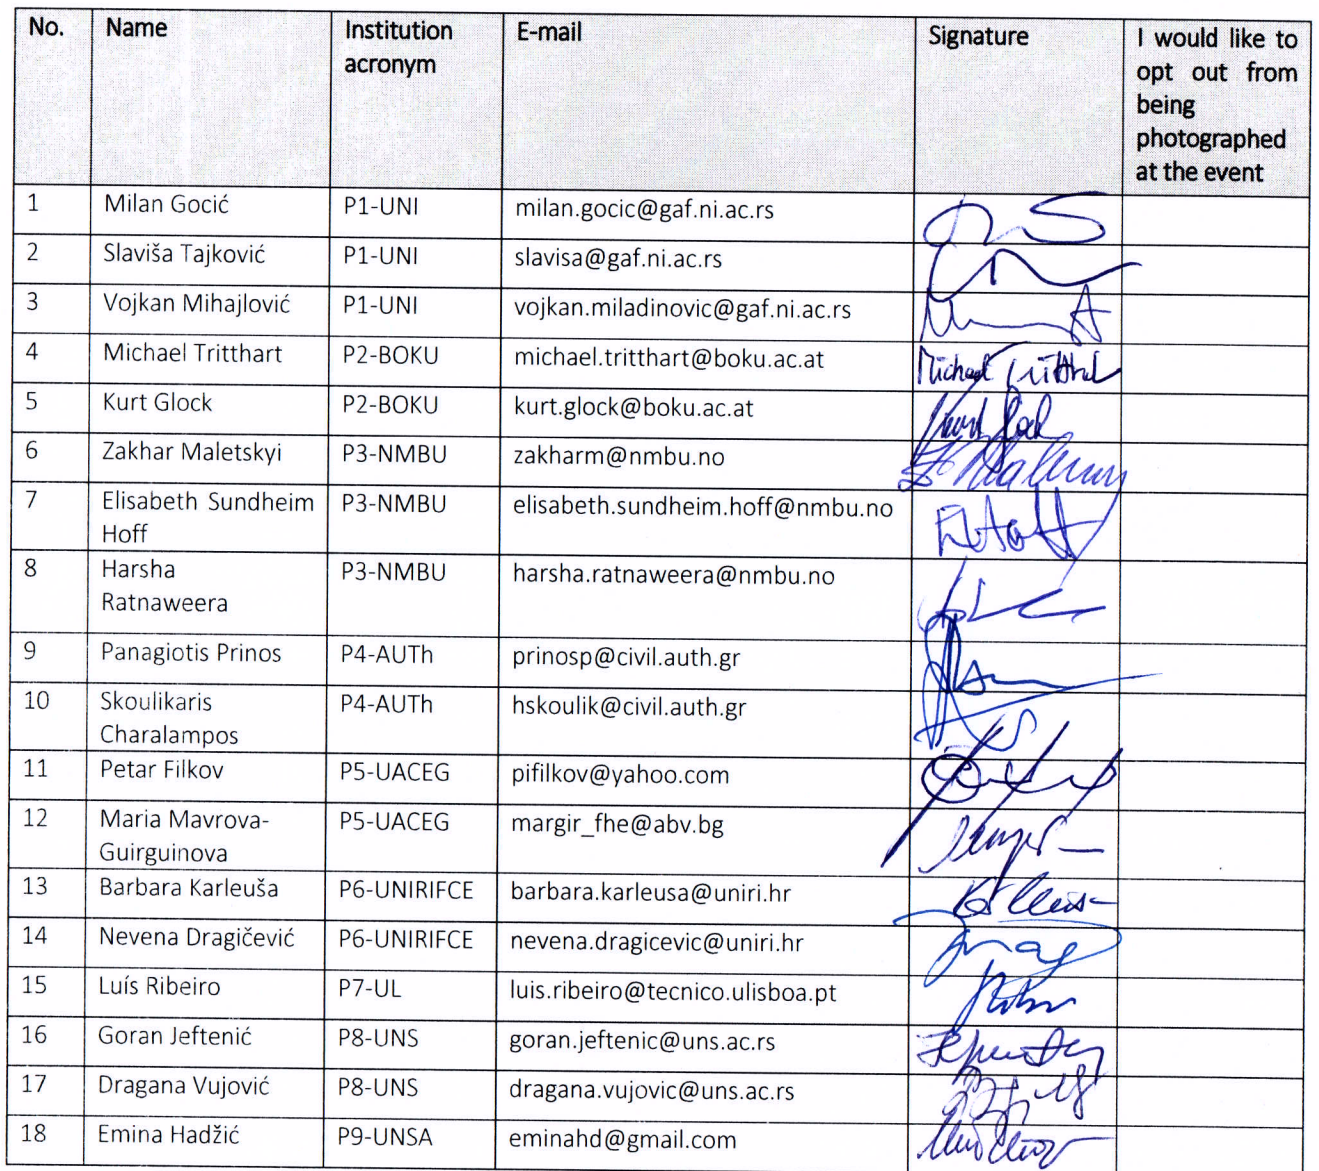 No. Name Institution acronym E-mail Signature I would like to opt out from being photographed at the event
1 Milan Gocić P1-UNI milan.gocic@gaf.ni.ac.rs
2 Slaviša Tajković P1-UNI slavisa@gaf.ni.ac.rs
3 Vojkan Mihajlović P1-UNI vojkan.miladinovic@gaf.ni.ac.rs
4 Michael Tritthart P2-BOKU michael.tritthart@boku.ac.at
5 Kurt Glock P2-BOKU kurt.glock@boku.ac.at
6 Zakhar Maletskyi P3-NMBU zakharm@nmbu.no
7 Elisabeth Sundheim Hoff P3-NMBU elisabeth.sundheim.hoff@nmbu.no
8 Harsha Ratnaweera P3-NMBU harsha.ratnaweera@nmbu.no
9 Panagiotis Prinos P4-AUTh prinosp@civil.auth.gr
10 Skoulikaris Charalampos P4-AUTh hskoulik@civil.auth.gr
11 Petar Filkov P5-UACEG pifilkov@yahoo.com
12 Maria Mavrova-Guirguinova P5-UACEG margir_fhe@abv.bg
13 Barbara Karleuša P6-UNIRIFCE barbara.karleusa@uniri.hr
14 Nevena Dragičević P6-UNIRIFCE nevena.dragicevic@uniri.hr
15 Luís Ribeiro P7-UL luis.ribeiro@tecnico.ulisboa.pt
16 Goran Jeftenić P8-UNS goran.jeftenic@uns.ac.rs
17 Dragana Vujović P8-UNS dragana.vujovic@uns.ac.rs
18 Emina Hadžić P9-UNSA eminahd@gmail.com